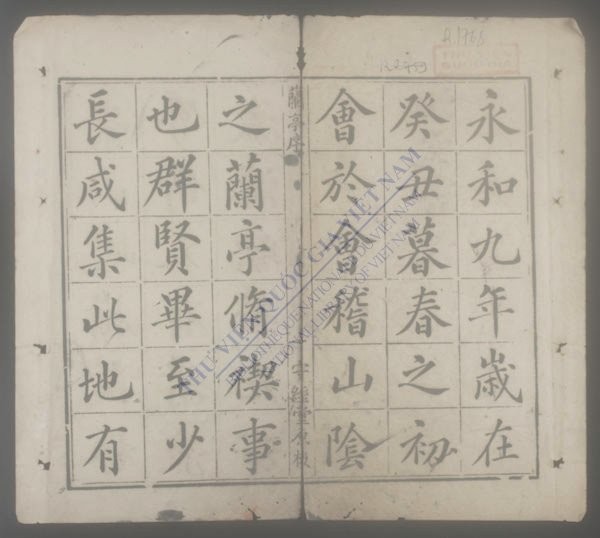 永和九年歲在
癸丑暮春之初
會於會稽山陰
蘭亭序
之蘭亭脩禊事
也群賢畢至少
長咸集此地有
THƯ VIỆN QUỐC GIA VIỆT NAM
NATIONAL LIBRARY OF VIETNAM